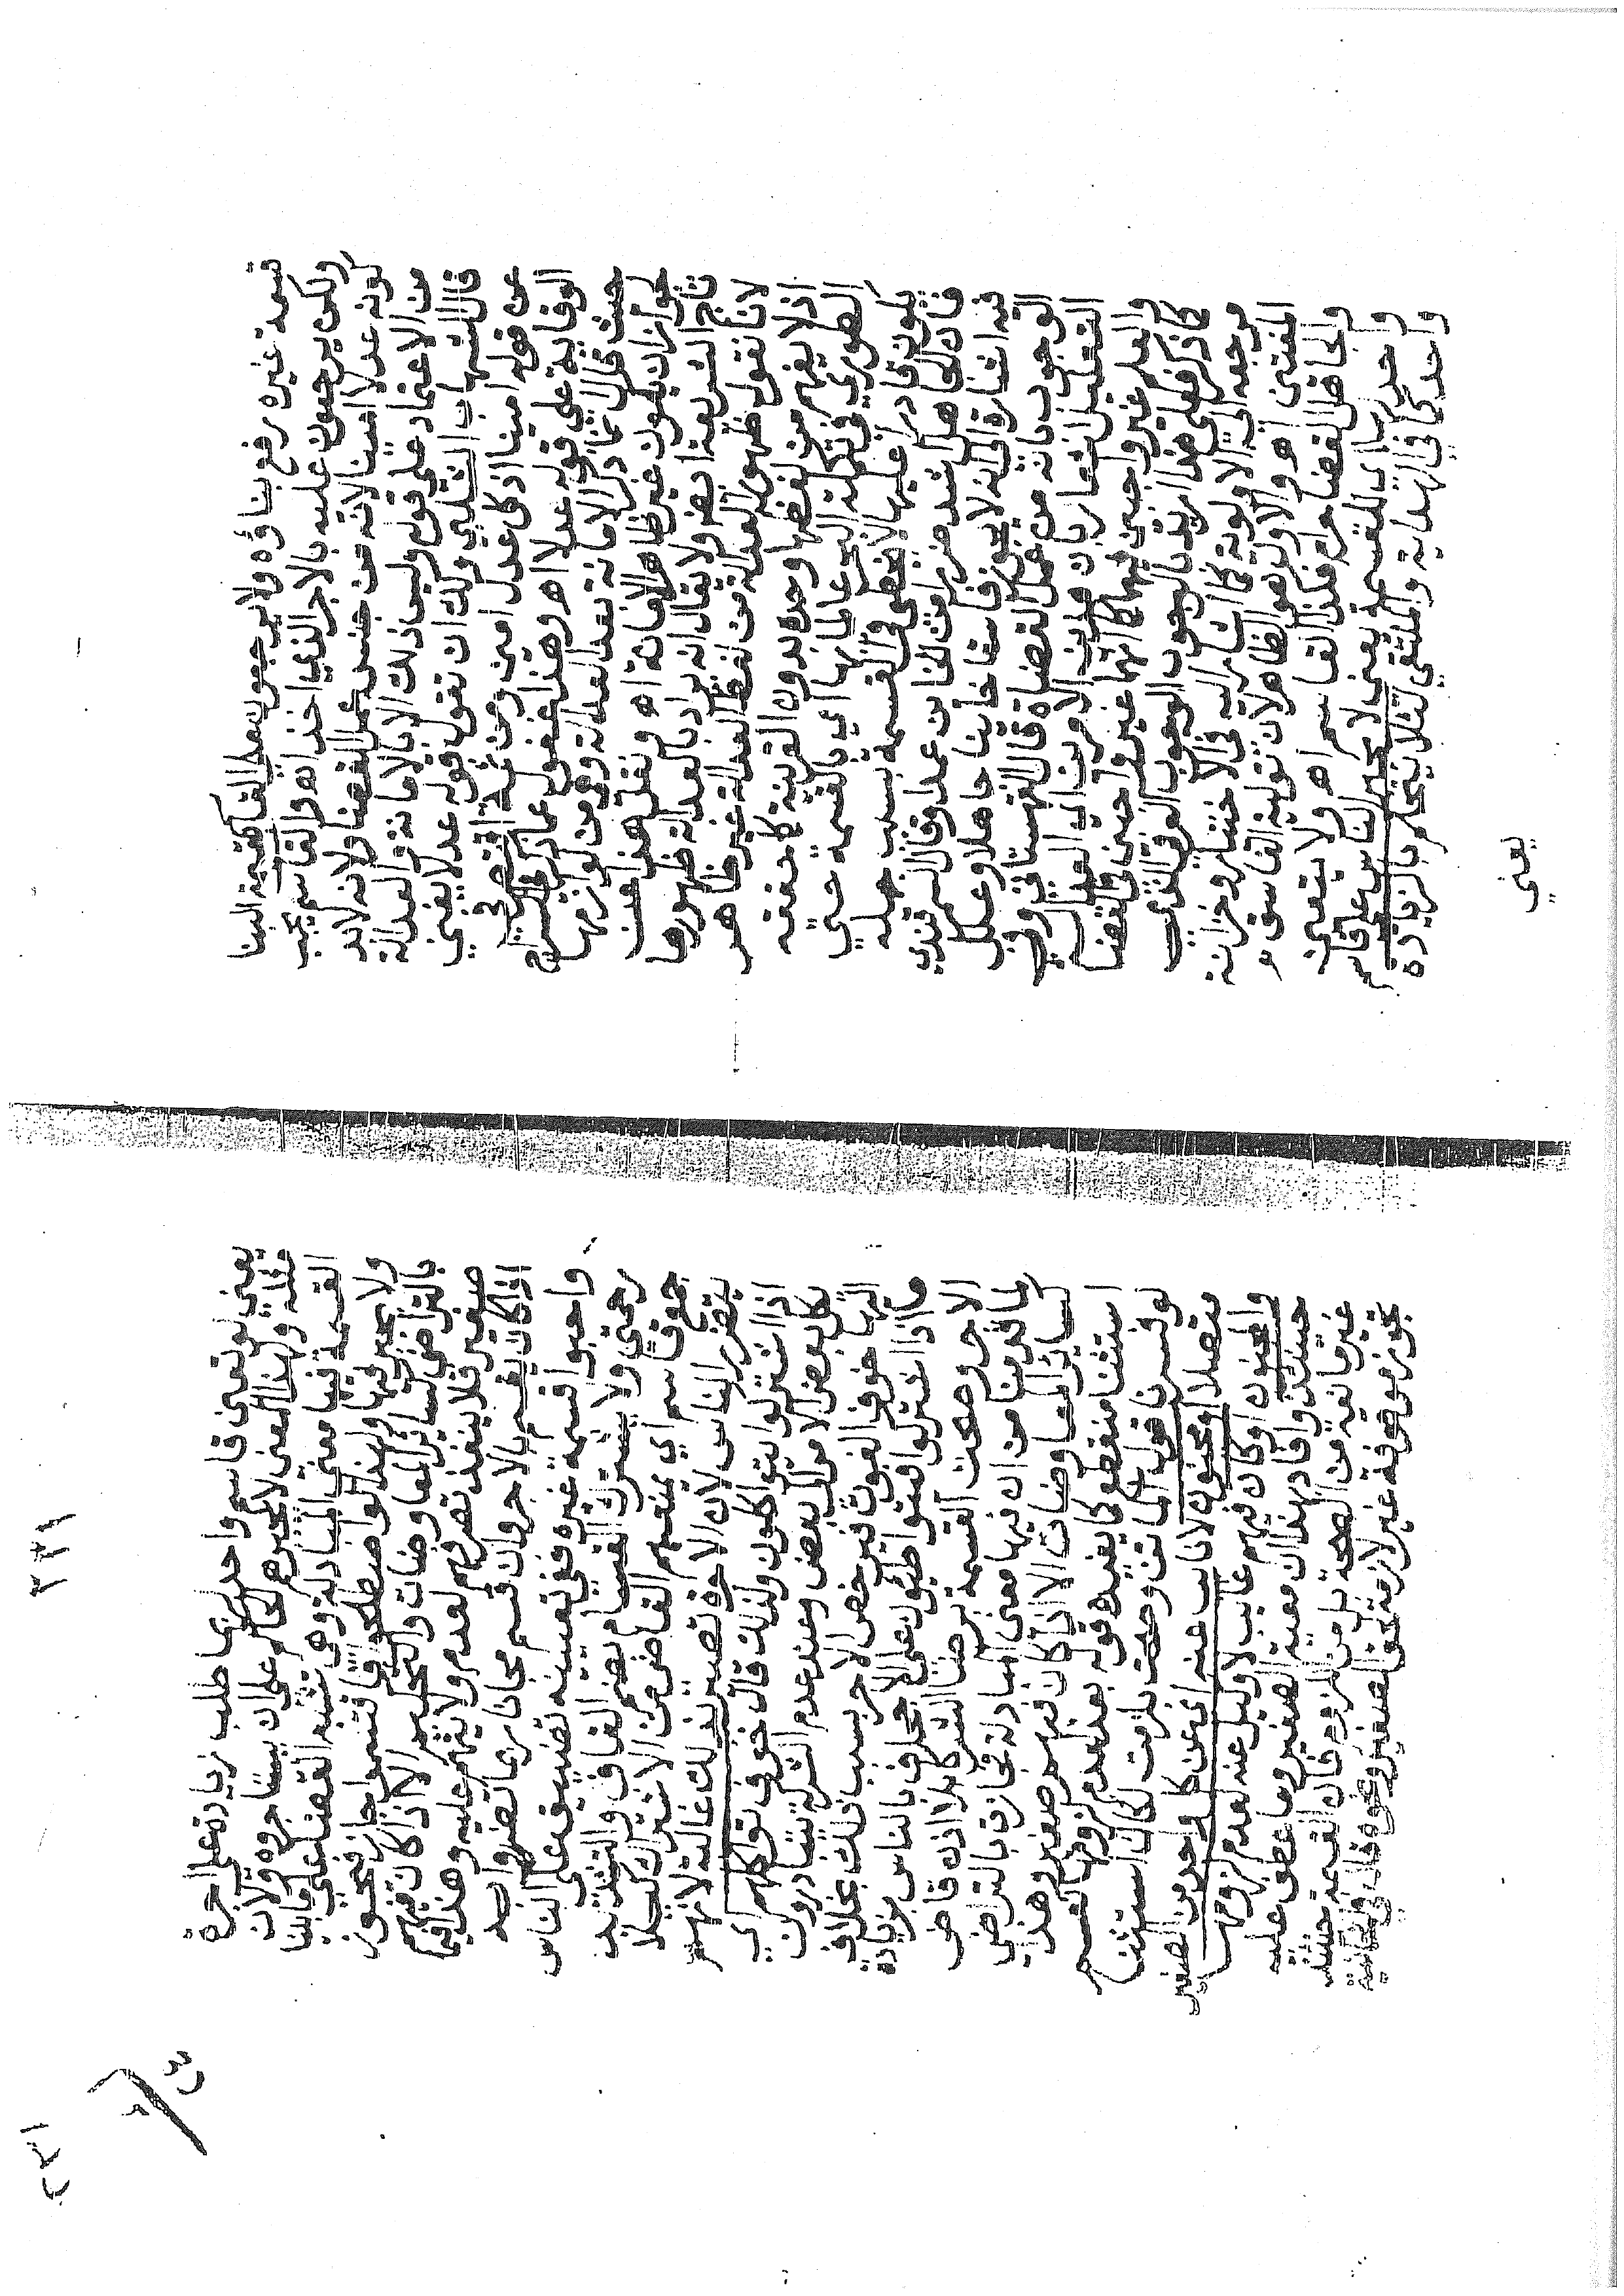 قسمة غيره رفع بناؤه ولا يرجعون بقيمة البنا
ولكن يرجعون عليه بالاجر الذي اخذ اهـ والقاسم يجب
كونه عدلا امينا لانه من جنس عمل القضا ولانه لابد
من الاعتماد على قوله وليس ذلك الا بالامانة والعدالة
قال الشهاب الشلبي ولك ان تقول قوله عدلا يغني
عن قوله امينا اذ كل عدل امين ومن ثمة اقتصر في
الوقاية على قوله عدلا اهـ وهذا غفول عما ذكره في السراج
حيث قال انما ذكر الامانة بعد العدالة وهي من لوازمها
جواز ان يكون غير ظاهر الامانة اهـ ونقل هذا عن
تاج الشريعة ايضا ولا يقال انه يراد بالعدالة ظهورها
لانا نقول ظهور العدالة من لفظ العدالة غير ظاهر
اذ لا يفهم من لفظها وحده بدون القرينة كما حققه
الطوري في تكملة البحر عالما بها اي بالقسمة حتي
يكون قادرا عليها لا يخطي في القسمة بسبب جهله
فان الجاهل اشد ضررا من الخاين عمدا وقال السمرقندي
فيه اشارة الى انه لا يجوز فاسقا خاينا جاهلا وعلل
الوجوب بانه من عمل القضاة قال القهستاني وفي
التعليل اشعار بان هذين الامرين اي العدالة
والعلم غير واجبين فيها كانهما غير واجبين في القضا
كما ذكر فعلي هذا اريد بالوجوب الوجوب العرفي الذي
مرجعه الى الاولوية كما اشار اليه في الاختيار وخزانة
المفتين اهـ والاول هو الظاهر لان تولية الفاسق
والجاهل القضا حرام فكذا القاسم اهـ ولا يتعين
واحد لها اي للقسمة يعني لا يجبر الناس على قاسم
واحد كما في الهداية والملتقي لئلا يتحكم بالزيادة
يعني
يعني لو تعين قاسم واحد ربما طلب زيادة على اجرة
مثله ولهذا المعنى لا يجبرهم الحاكم على ان يستاجروه ولان
القسمة فيها معنى المبادلة وهي تشبه القضا على ما بينا
ولا يجبر فيها ولهذا لو اصطلحوا فاقتسموا جاز فيجوز
بالتراضي كساير المعاوضات والتحكيم الا اذا كان فيهم
صغير فلا ينفذ تصرفهم لعدم ولايتهم عليه وهذا فيما
اذا كان يقسم بالاجر وان قسم مجانا ربما تضرروا به
واحبوا قسمة غيره ففي تعيينه تضييق على الناس
رحمتي ولا يشترك القسام بضم القاف والتشديد
جمع قاسم اي يمنعهم القاضي من الاشتراك كيلا
يتضرر الناس لان الاجرة تصير بذلك غالية لانهم
اذا اشتركوا يتواكلون ولذلك قال خوف تواكلهم اي
يكل بعض الامر الى بعض وعند عدم الشركة يتبادرون
اليها خوف الفوت فيرخص الاجر بسبب ذلك بخلاف
ما اذا اشتركوا فيتواطؤن على الاجحاف بالناس بزيادة
الاجر وصحت القسمة برضا الشركا بلا اذن قاض
لما قدمنا من ان فيها معنى المبادلة فجازت بالتراضي
كساير المعاوضات الا اذا كان فيهم صغير وهذا
استثنا منقطع كما يفيده قوله بعد لعدم لزومها
لو فسرنا قول الماتن وصحت بلزمت لكان استثنا
متصلا او مجنون لا نايب عنه اي عن كل واحد من الصغير
والمجنون او كان فيهم غايب لا وكيل عنه لعدم لزومها
حينئذ وافاد بهذا ان معية الصغير وما عطف عليه
غير مانعة من الصحة بل من اللزوم فان القسمة حينئذ
تجوز موقوفة غير لازمة بحق الصغير ونحوه قال في الخانية